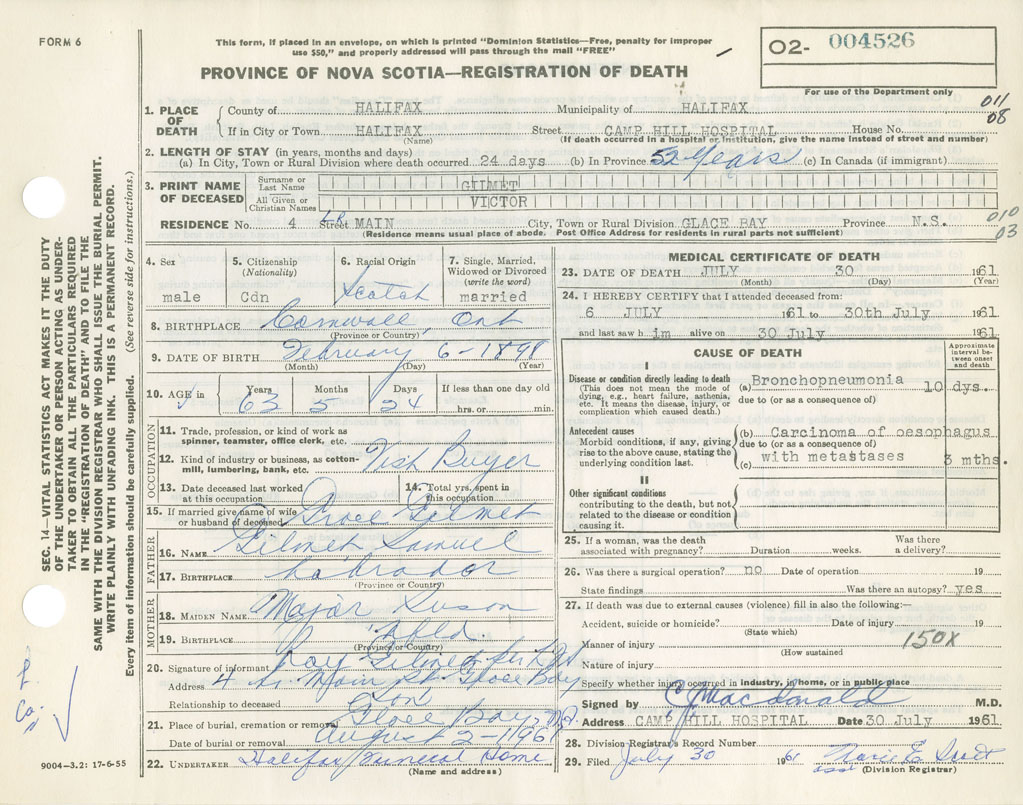 FORM 6
This form, if placed in an envelope, on which is printed "Dominion Statistics—Free, penalty for improper
use $50," and properly addressed will pass through the mail "FREE"
PROVINCE OF NOVA SCOTIA—REGISTRATION OF DEATH
02- 004526
For use of the Department only
011
08
1. PLACE OF DEATH
County of HALIFAX Municipality of HALIFAX
If in City or Town HALIFAX Street CAMP HILL HOSPITAL House No.
(Name) (If death occurred in a hospital or institution, give the name instead of street and number)
2. LENGTH OF STAY (in years, months and days)
(a) In City, Town or Rural Division where death occurred 24 days (b) In Province 52 Years (c) In Canada (if immigrant)
3. PRINT NAME OF DECEASED
Surname or Last Name GILMET
All Given or Christian Names VICTOR
RESIDENCE No. 4 Street MAIN City, Town or Rural Division GLACE BAY Province N.S.
(Residence means usual place of abode. Post Office Address for residents in rural parts not sufficient)
010
03
4. Sex male
5. Citizenship (Nationality) Cdn
6. Racial Origin Scotch
7. Single, Married, Widowed or Divorced (write the word) married
8. BIRTHPLACE Cornwall, Ont
(Province or Country)
9. DATE OF BIRTH February 6-1898
(Month) (Day) (Year)
10. AGE in Years 63 Months 5 Days 24 If less than one day old hrs. or min.
OCCUPATION
11. Trade, profession, or kind of work as spinner, teamster, office clerk, etc.
12. Kind of industry or business, as cotton-mill, lumbering, bank, etc. Fish Buyer
13. Date deceased last worked at this occupation
14. Total yrs. spent in this occupation
15. If married give name of wife or husband of deceased Grace Gilmet
FATHER
16. NAME Gilmet Samuel
17. BIRTHPLACE Labrador
(Province or Country)
MOTHER
18. MAIDEN NAME Major Susan
19. BIRTHPLACE Nfld.
(Province or Country)
20. Signature of informant Roy Gilmet
Address 4 Main St. Glace Bay
Relationship to deceased Son
21. Place of burial, cremation or removal Glace Bay, N.S.
Date of burial or removal August 2-1961
22. UNDERTAKER Halifax Funeral Home
(Name and address)
MEDICAL CERTIFICATE OF DEATH
23. DATE OF DEATH JULY 30 1961
(Month) (Day) (Year)
24. I HEREBY CERTIFY that I attended deceased from:
6 JULY 1961 to 30th July 1961
and last saw him alive on 30 July 1961
CAUSE OF DEATH
Approximate interval between onset and death
I
Disease or condition directly leading to death
(This does not mean the mode of dying, e.g., heart failure, asthenia, etc. It means the disease, injury, or complication which caused death.)
(a) Bronchopneumonia 10 dys.
due to (or as a consequence of)
Antecedent causes
Morbid conditions, if any, giving rise to the above cause, stating the underlying condition last.
(b) Carcinoma of oesophagus
due to (or as a consequence of)
(c) with metastases 3 mths.
II
Other significant conditions
contributing to the death, but not related to the disease or condition causing it.
25. If a woman, was the death associated with pregnancy? Duration weeks. Was there a delivery?
26. Was there a surgical operation? no Date of operation 19
State findings Was there an autopsy? yes
27. If death was due to external causes (violence) fill in also the following:—
Accident, suicide or homicide? Date of injury 19
(State which)
Manner of injury 150X
(How sustained)
Nature of injury
Specify whether injury occurred in industry, in home, or in public place
Signed by C MacDonald M.D.
Address CAMP HILL HOSPITAL Date 30 July 1961
28. Division Registrar's Record Number
29. Filed July 30 1961 Marie E Scott
(Division Registrar)
SEC. 14—VITAL STATISTICS ACT MAKES IT THE DUTY
OF THE UNDERTAKER OR PERSON ACTING AS UNDER-
TAKER TO OBTAIN ALL THE PARTICULARS REQUIRED
IN THE "REGISTRATION OF DEATH" AND TO FILE THE
SAME WITH THE DIVISION REGISTRAR WHO SHALL ISSUE THE BURIAL PERMIT.
WRITE PLAINLY WITH UNFADING INK. THIS IS A PERMANENT RECORD.
Every item of information should be carefully supplied. (See reverse side for instructions.)
9004-3.2: 17-6-55